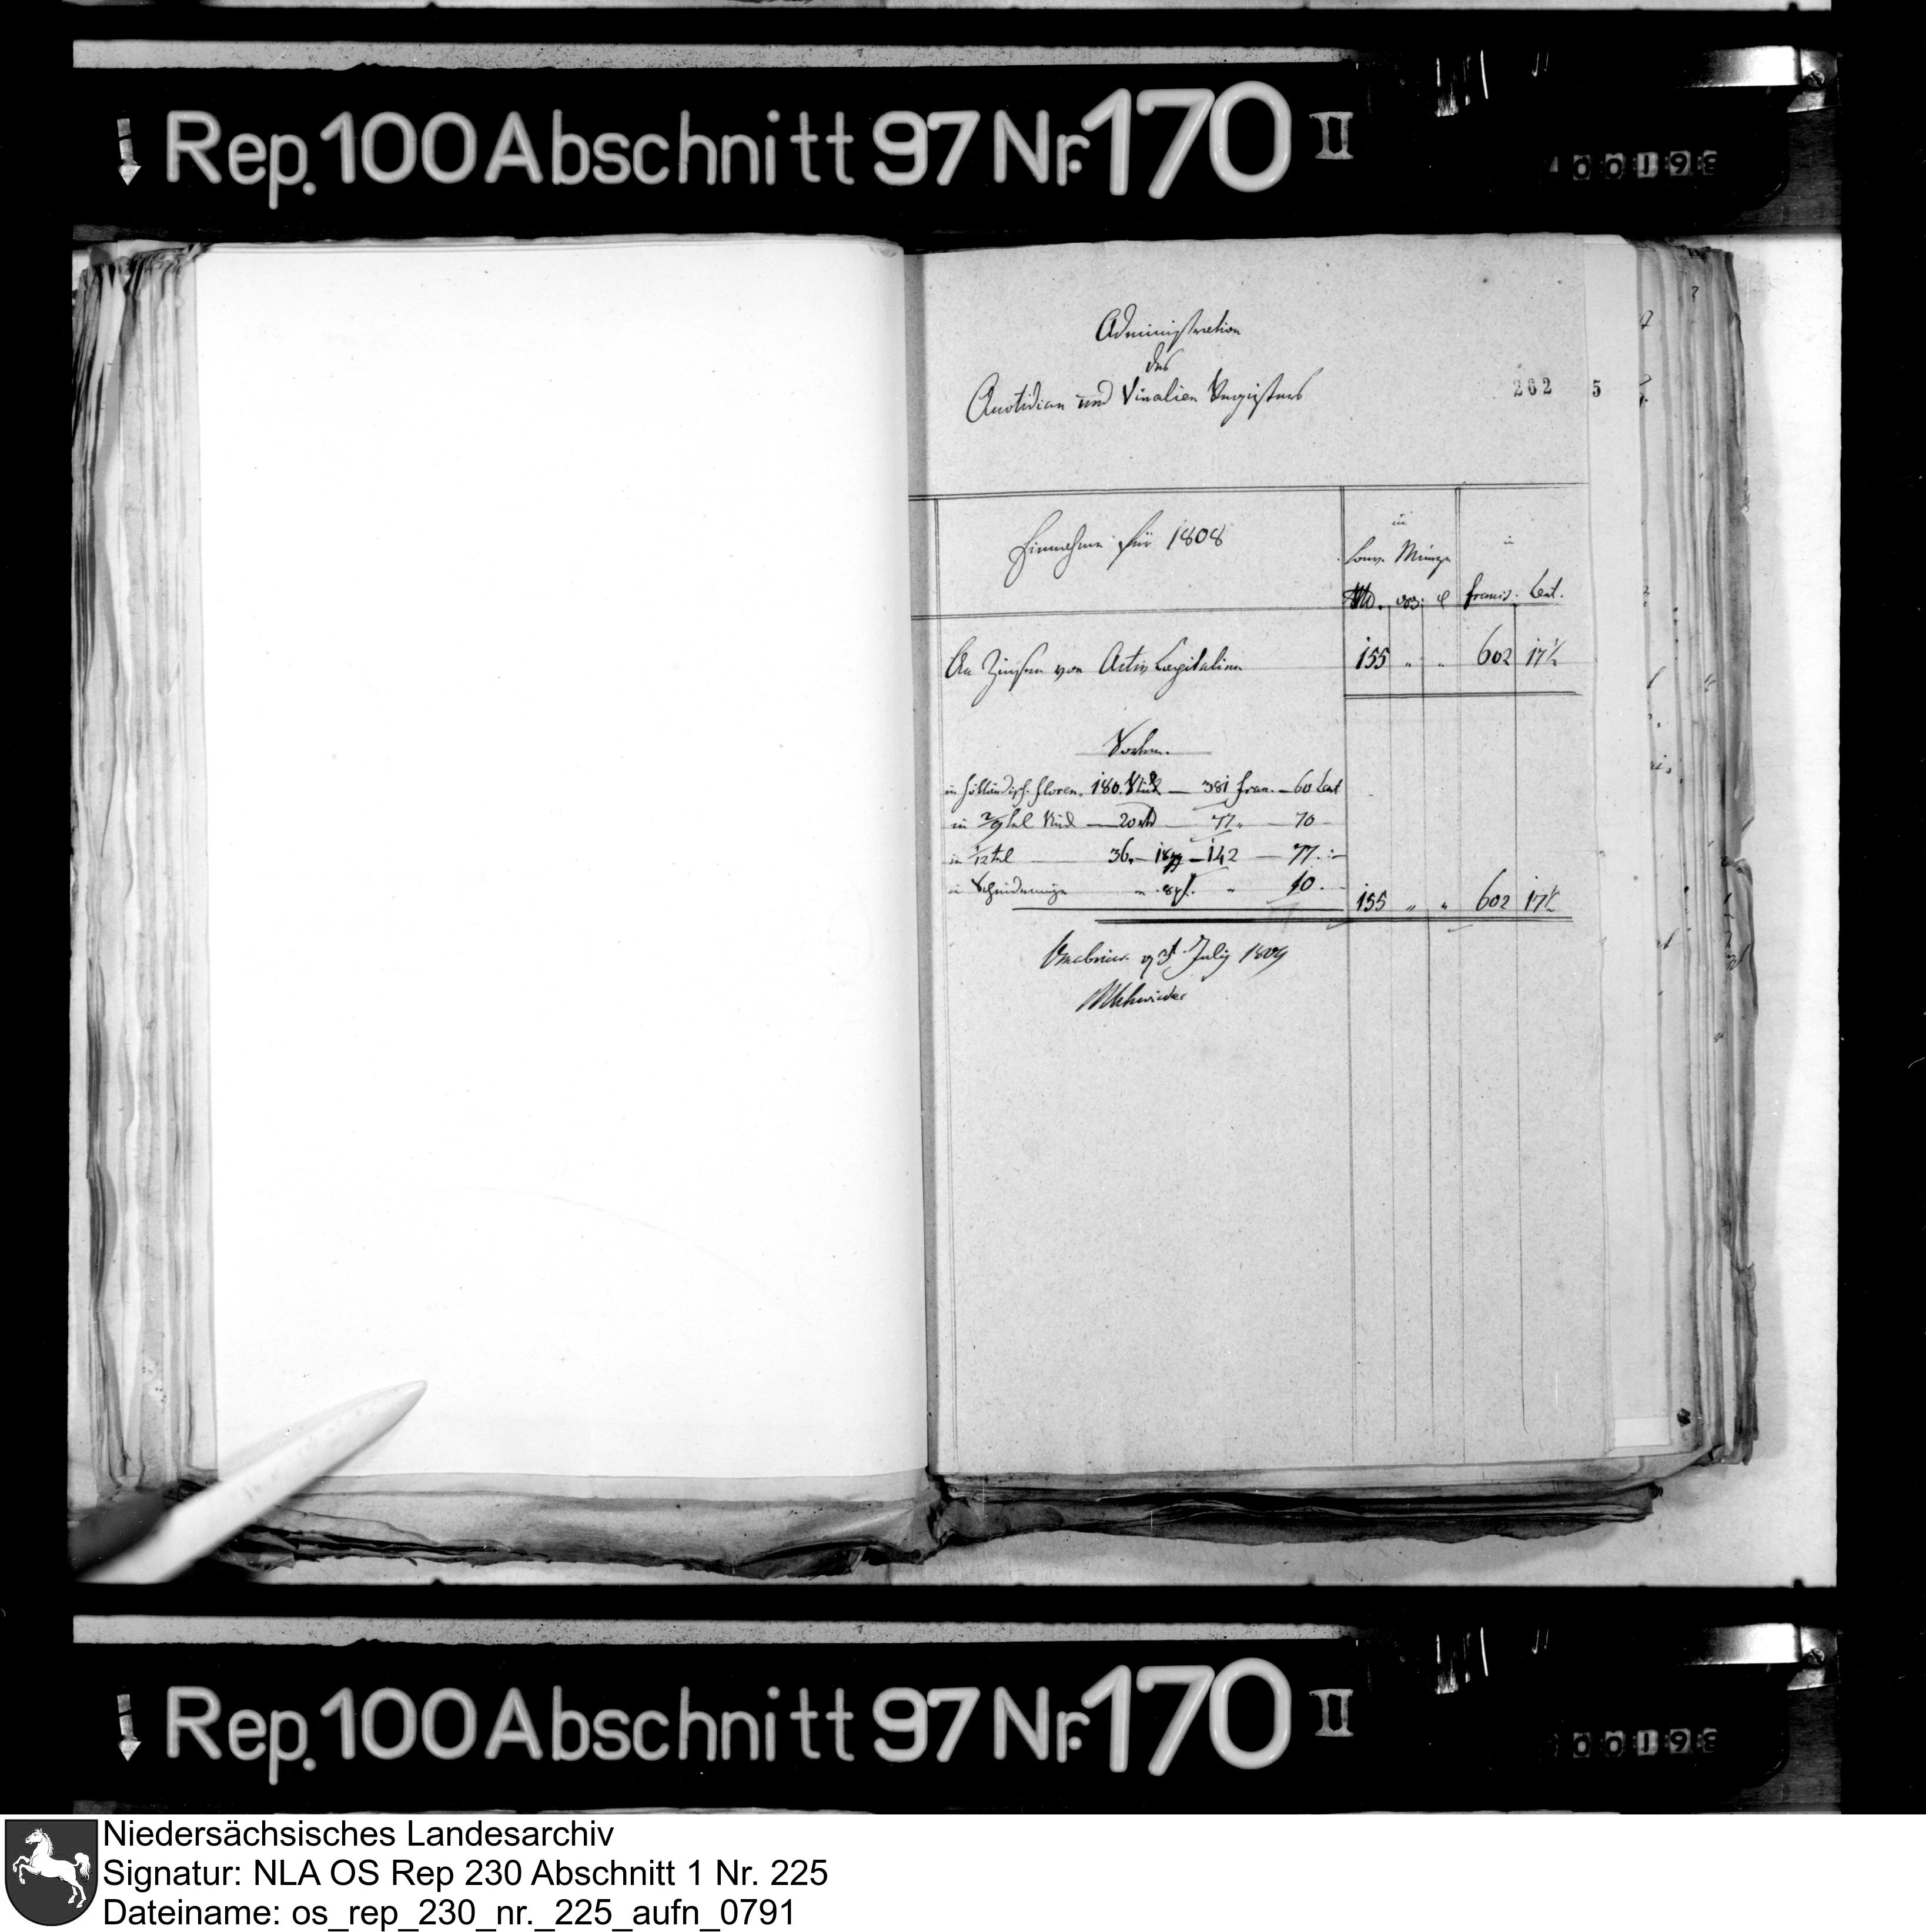 Rep. 100 Abschnitt 97 Nr. 170 II
00193
Administration
des
Quotidian und Vinalien Registers
262 5
Einnahme für 1808
in
Conv. Münze
in
Rtlr. ggr. ₰ Francs. Cent.
An Zinsen von Activ Capitalien 155 " " 602 17½
Sorten.
in holländisch. Floren. 180. Stück — 381 Fran. — 60 Cent
in 2/3tel Stück — 20 — 77 " — 70 —
in 1/12tel — 36 — 18 — 142 — 77. —
in Scheidemünze " 8 " 10. —
155 " " 602 17½
Osnabrück July 1809
Rep. 100 Abschnitt 97 Nr. 170 II
00193
Niedersächsisches Landesarchiv
Signatur: NLA OS Rep 230 Abschnitt 1 Nr. 225
Dateiname: os_rep_230_nr._225_aufn_0791